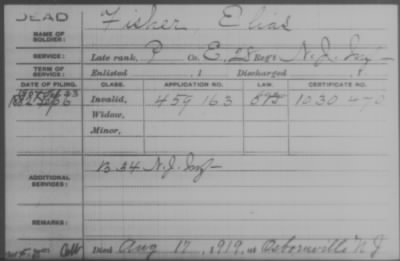 DEAD
NAME OF SOLDIER: Fisher, Elias
SERVICE: Late rank, P Co. E, 28 Reg't N. J. Inf
TERM OF SERVICE: Enlisted , 1 Discharged , 1
DATE OF FILING. CLASS. APPLICATION NO. LAW. CERTIFICATE NO.
Invalid, 459 163 1030 470
Widow,
Minor,
ADDITIONAL SERVICES: B 34 N. J. Inf
REMARKS:
Died Aug 17, 1919, at Osbornville N J